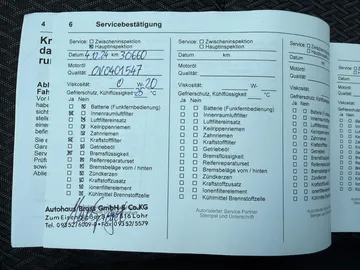 4
6 Servicebestätigung
Service: Zwischeninspektion
Hauptinspektion
Datum 4.12.24 km 30660
Motoröl
Qualität: 0V0401547
Viskosität: 0 W- 20
Gefrierschutz, Kühlflüssigkeit: °C
Ja Nein
Batterie (Funkfernbedienung)
Innenraumluftfilter
Luftfiltereinsatz
Keilrippenriemen
Zahnriemen
Kraftstofffilter
Getriebeöl
Bremsflüssigkeit
Reifenreparaturset
Bremsbeläge vorn / hinten
Zündkerzen
Kraftstoffzusatz
Ionenfilterelement
Kühlmittel Brennstoffzelle
Autohaus Brass GmbH & Co.KG
Lohr
Service: Zwischeninspektion
Hauptinspektion
Datum km
Motoröl
Qualität:
Viskosität: W-
Gefrierschutz, Kühlflüssigkeit: °C
Ja Nein
Batterie (Funkfernbedienung)
Innenraumluftfilter
Luftfiltereinsatz
Keilrippenriemen
Zahnriemen
Kraftstofffilter
Getriebeöl
Bremsflüssigkeit
Reifenreparaturset
Bremsbeläge vorn / hinten
Zündkerzen
Kraftstoffzusatz
Ionenfilterelement
Kühlmittel Brennstoffzelle
Autorisierter Service Partner
Stempel und Unterschrift
Service:
Datum
Motoröl
Qualität:
Viskosität:
Gefrierschutz,
Ja Nein